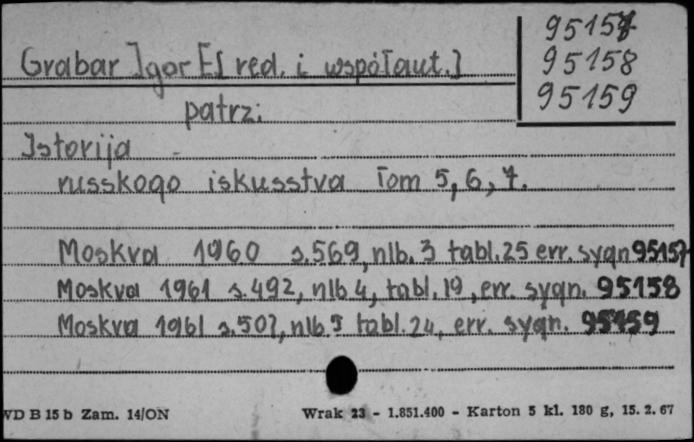 95157
Grabar Igor E[red. i współaut.]
95158
95159
patrz:
Istorija
russkogo iskusstva Tom 5, 6, 7.
Moskva 1960 s.569, nlb. 3 tabl. 25 err. sygn 95157
Moskva 1961 s.492, nlb 4, tabl. 19, err. sygn. 95158
Moskva 1961 s.507, nlb. 5 tabl. 24, err. sygn. 95159
WD B 15 b Zam. 14/ON
Wrak 23 - 1.851.400 - Karton 5 kl. 180 g, 15. 2. 67